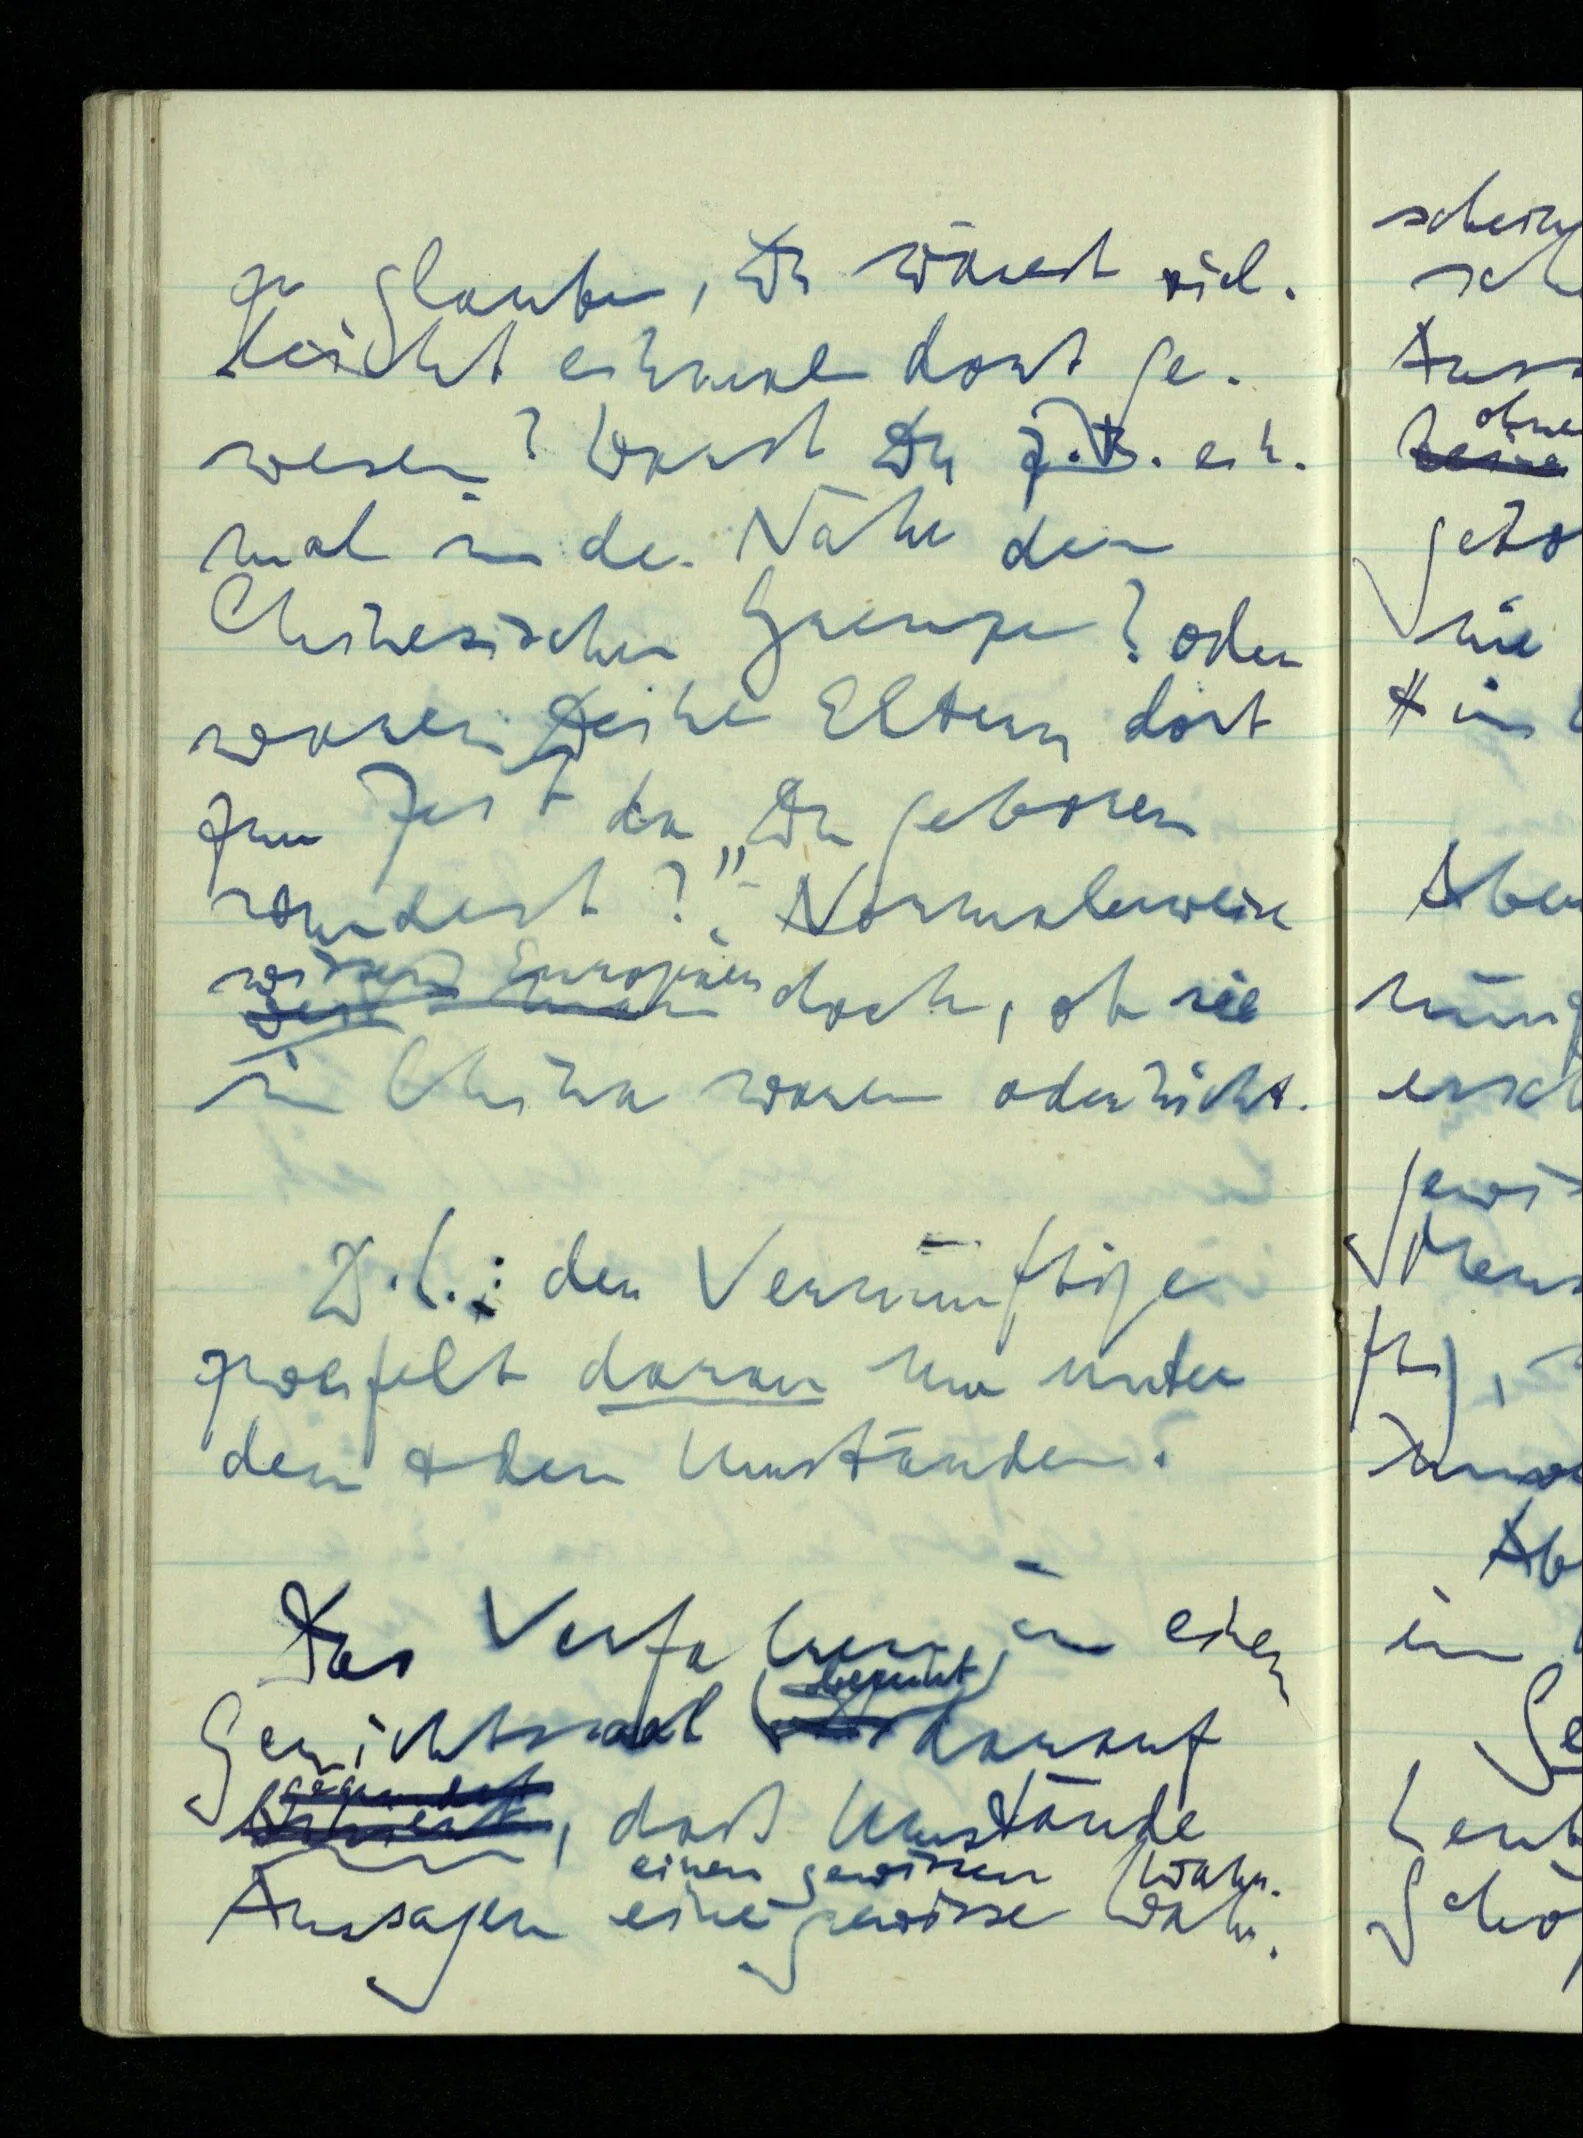 zu glauben, Du wärest viel-
leicht einmal dort ge-
wesen? Warst Du z.B. ein-
mal in der Nähe der
Chinesischen Grenze? oder
waren Deine Eltern dort
zur Zeit da Du geboren
wurdest?” – Normalerweise
wissen Europäer
weiß man doch, ob sie
in China waren oder nicht.
D.h.: der Vernünftige
zweifelt daran nur unter
den & den Umständen.
Das Verfahren in einem
beruht
Gerichtssaal darauf
gegründet
, daß Umstände
einen gewissen Wahr-
Aussagen eine gewisse Wahr-
schein
sch
Auss
ohne
keine
gebo
nie
in
Aber
ersch
gewis
Mens
ft),
Ab
in
Ge